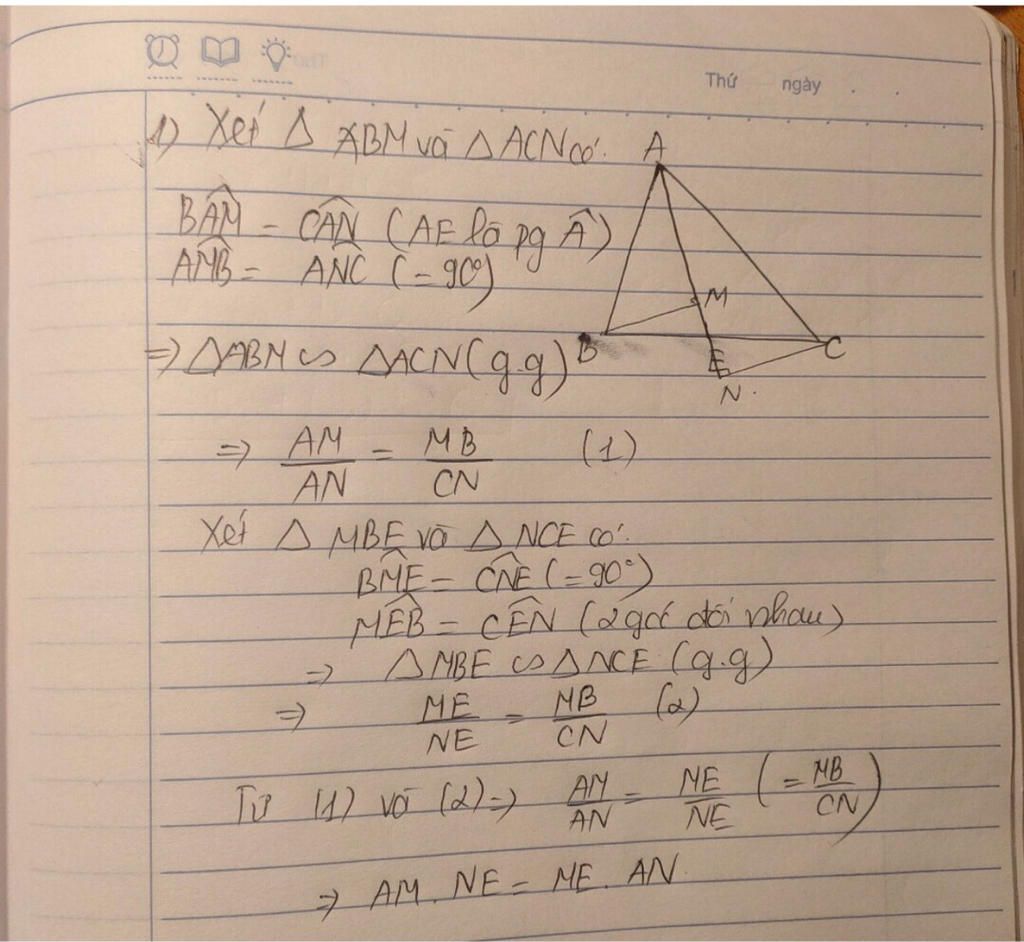 Thứ ngày . .
1) Xét Δ ABM và Δ ACN có:
A
BÂM = CÂN (AE là pg Â)
AM̂B = AN̂C (= 90°)
M
=> ΔABM ∽ ΔACN (g.g)
B
E
C
N
=> AM/AN = MB/CN (1)
Xét Δ MBE và Δ NCE có:
BM̂E = CN̂E (= 90°)
MÊB = CÊN (2 góc đối nhau)
=> ΔMBE ∽ ΔNCE (g.g)
=> ME/NE = MB/CN (2)
Từ (1) và (2) => AM/AN = ME/NE (= MB/CN)
=> AM . NE = ME . AN